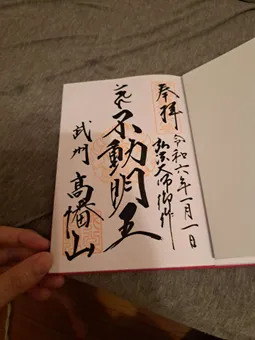 奉拝
令和六年一月一日
弘法大師御作
不動明王
武州 高幡山